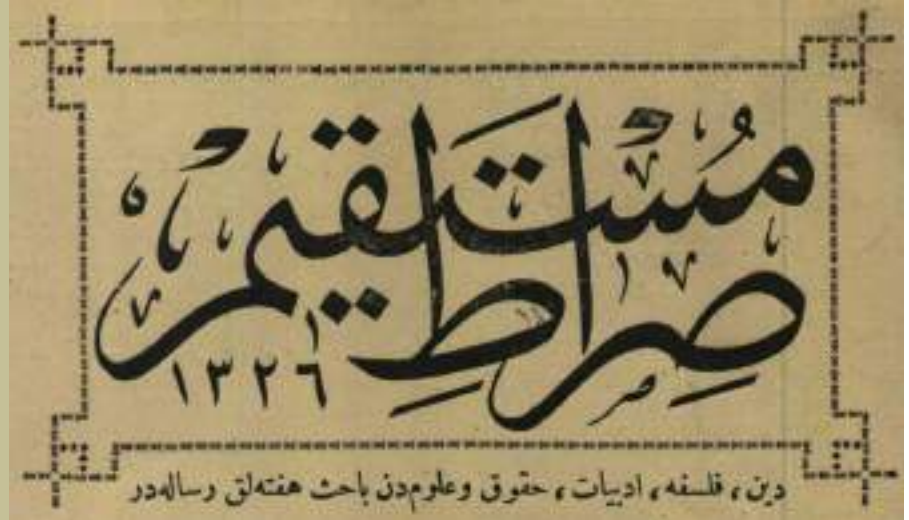 صِرَاطِ مُسْتَقِيم
١٣٢٦
دين، فلسفه، ادبيات، حقوق وعلومدن باحث هفتهلق رسالهدر